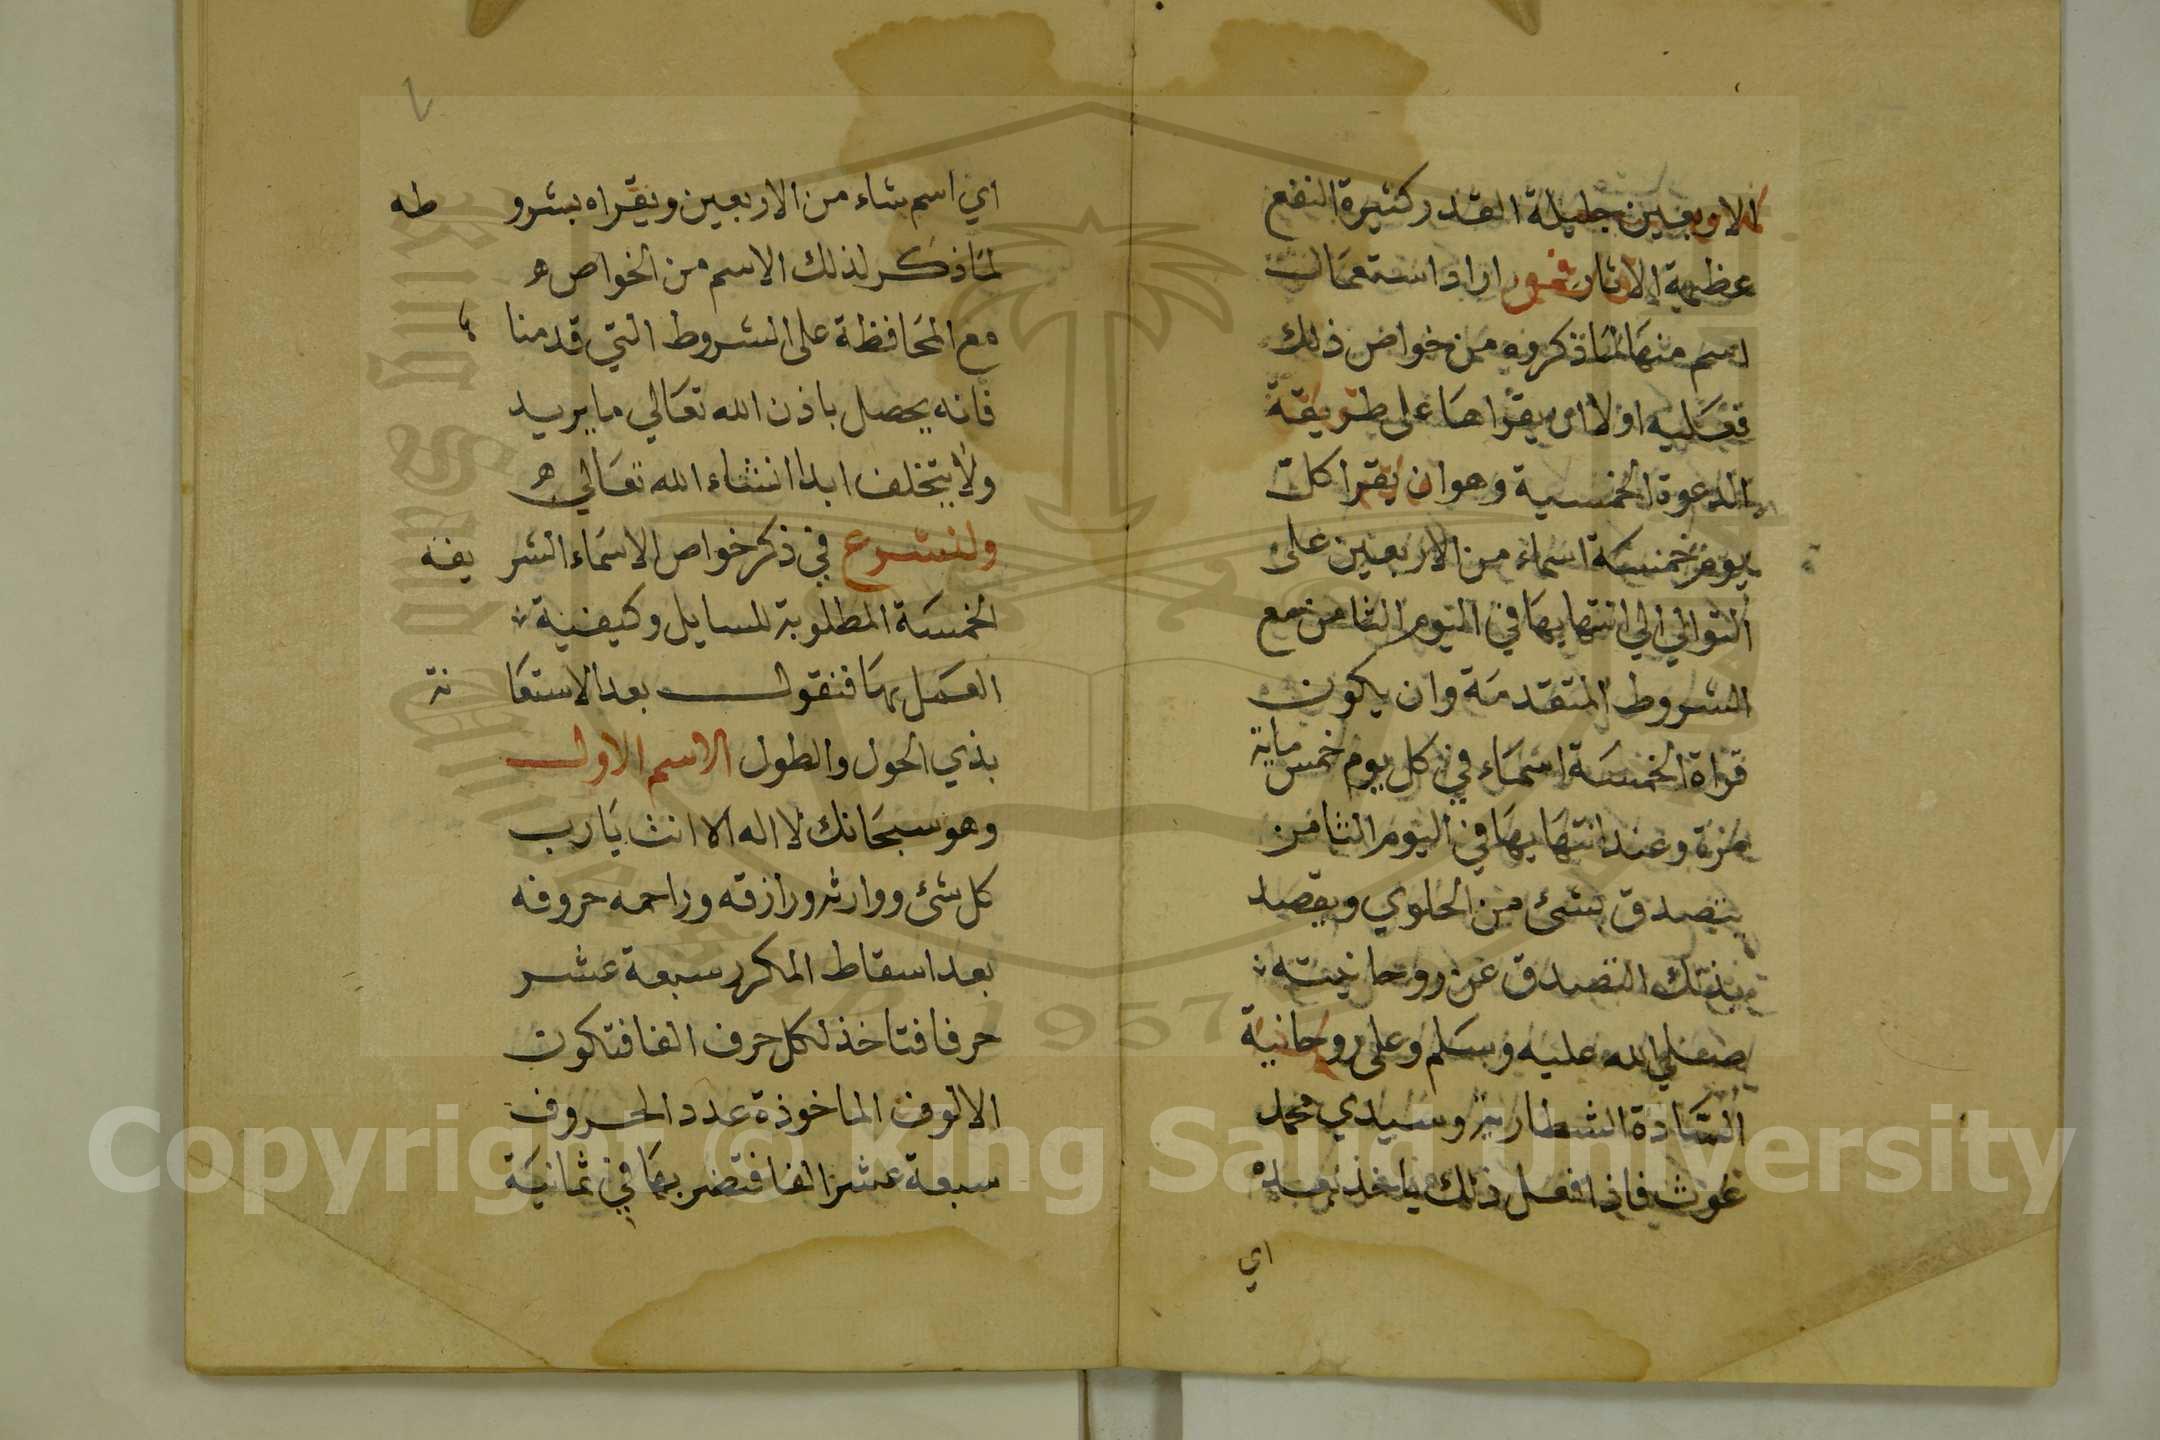 الاربعين جليلة القدر كثيرة النفع
عظيمة الاثار فمن اراد استعمال
اسم منها لما ذكروه من خواص ذلك
فعليه اولا ان يقراها على طريقة
الدعوة الخمسية وهو ان يقرا كل
يوم خمسة اسماء من الاربعين على
التوالي الي انتهايها في اليوم الثامن مع
الشروط المتقدمة وان يكون
قراة الخمسة اسماء في كل يوم خمس ماية
مرة وعند انتهايها في اليوم الثامن
يتصدق بشئ من الحلوي ويقصد
بذلك التصدق عن روحانيته
صلي الله عليه وسلم وعلى روحانية
السادة الشطارية وسيدي محمد
غوث فاذا فعل ذلك ياخذ بعده
اي
اي اسم شاء من الاربعين ويقراه بشروطه
لما ذكر لذلك الاسم من الخواص ه
مع المحافظة على الشروط التي قدمنا
فانه يحصل باذن الله تعالي ما يريد
ولا يتخلف ابدا انشاء الله تعالي ه
ولنشرع في ذكر خواص الاسماء الشريفه
الخمسة المطلوبة للسايل وكيفية
العمل بها فنقول بعد الاستعانة
بذي الحول والطول الاسم الاول
وهو سبحانك لا اله الا انت يا رب
كل شئ ووارثه ورازقه وراحمه حروفه
بعد اسقاط المكرر سبعة عشر
حرفا فتاخذ لكل حرف الفا فتكون
الالوف الماخوذة عدد الحروف
سبعة عشر الفا فتضربها في ثمانية
Copyright © King Saud University
1957